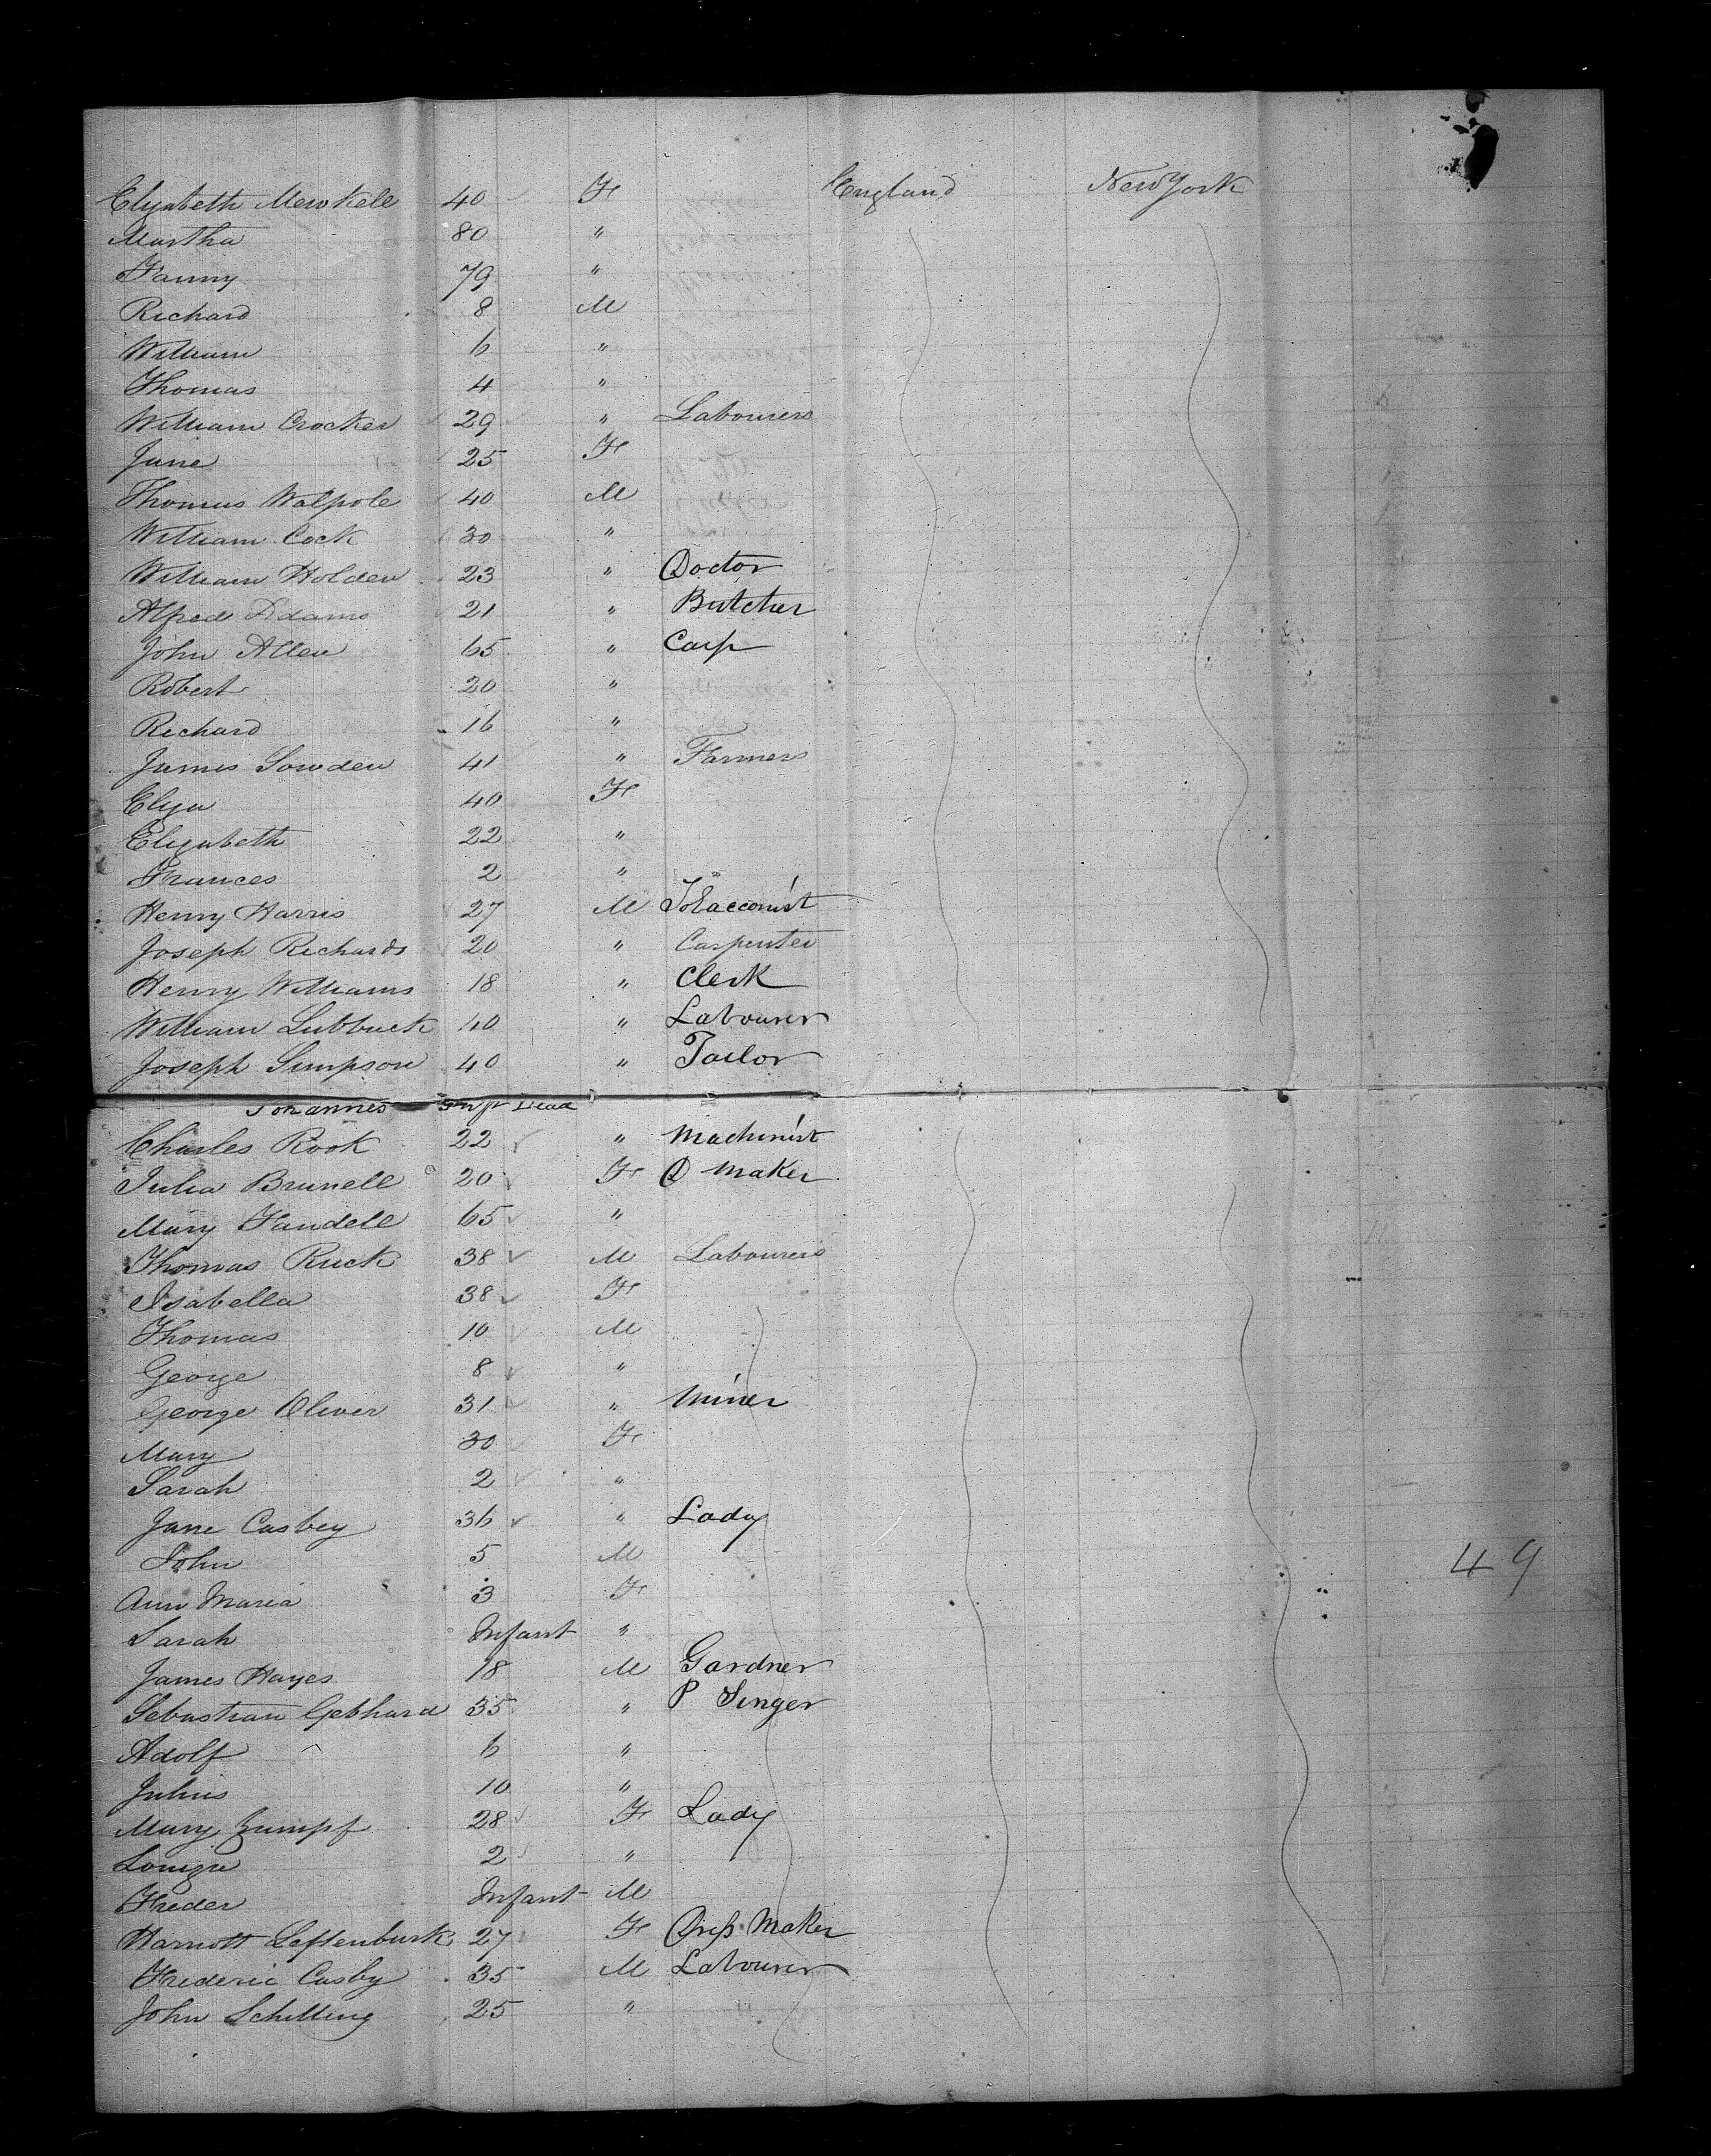 Elyabeth Mewkell 40 F England New York
Martha 80 "
Fanny 79 "
Richard 8 M
William 6 "
Thomas 4 "
William Crocker 29 " Labourers
Jane 25 F
Thomas Walpole 40 M
William Cock 30 "
William Holden 23 " Doctor
Alfred Adams 21 " Butcher
John Allen 65 " Carp
Robert 20 "
Richard 16 "
James Sowden 41 " Farmers
Elyza 40 F
Elizabeth 22 "
Frances 2 "
Henry Harris 27 M Tobacconist
Joseph Richards 20 " Carpenter
Henry Williams 18 " Clerk
William Lubbuck 40 " Labourer
Joseph Simpson 40 " Tailor
Johannes Dead
Charles Rook 22 " Machinist
Julia Brunell 20 F D Maker
Mary Fandell 65 "
Thomas Ruck 38 M Labourers
Isabella 38 F
Thomas 10 M
George 8 "
George Oliver 31 " Miner
Mary 30 F
Sarah 2 "
Jane Casbey 36 " Lady
John 5 M
49
Ann Maria 3 F
Sarah Infant "
James Hayes 18 M Gardner
Sebastian Gebhard 35 " P Singer
Adolf 6 "
Julius 10 "
Mary Zumpf 28 F Lady
Louize 2 "
Freder Infant M
Harriott Leftenburk 27 F Dress Maker
Frederic Casby 35 M Labourer
John Schilling 25 "